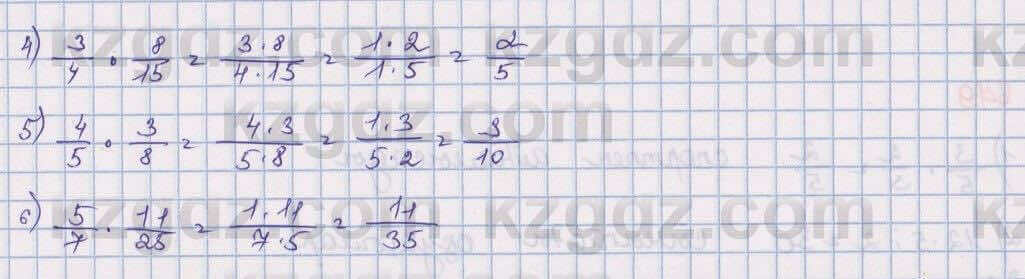 4) 3/4 · 8/15 = 3·8/4·15 = 1·2/1·5 = 2/5
5) 4/5 · 3/8 = 4·3/5·8 = 1·3/5·2 = 3/10
6) 5/7 · 11/25 = 1·11/7·5 = 11/35
kzgdz.com
kzgdz.com
kzgdz.com
kzgdz.com